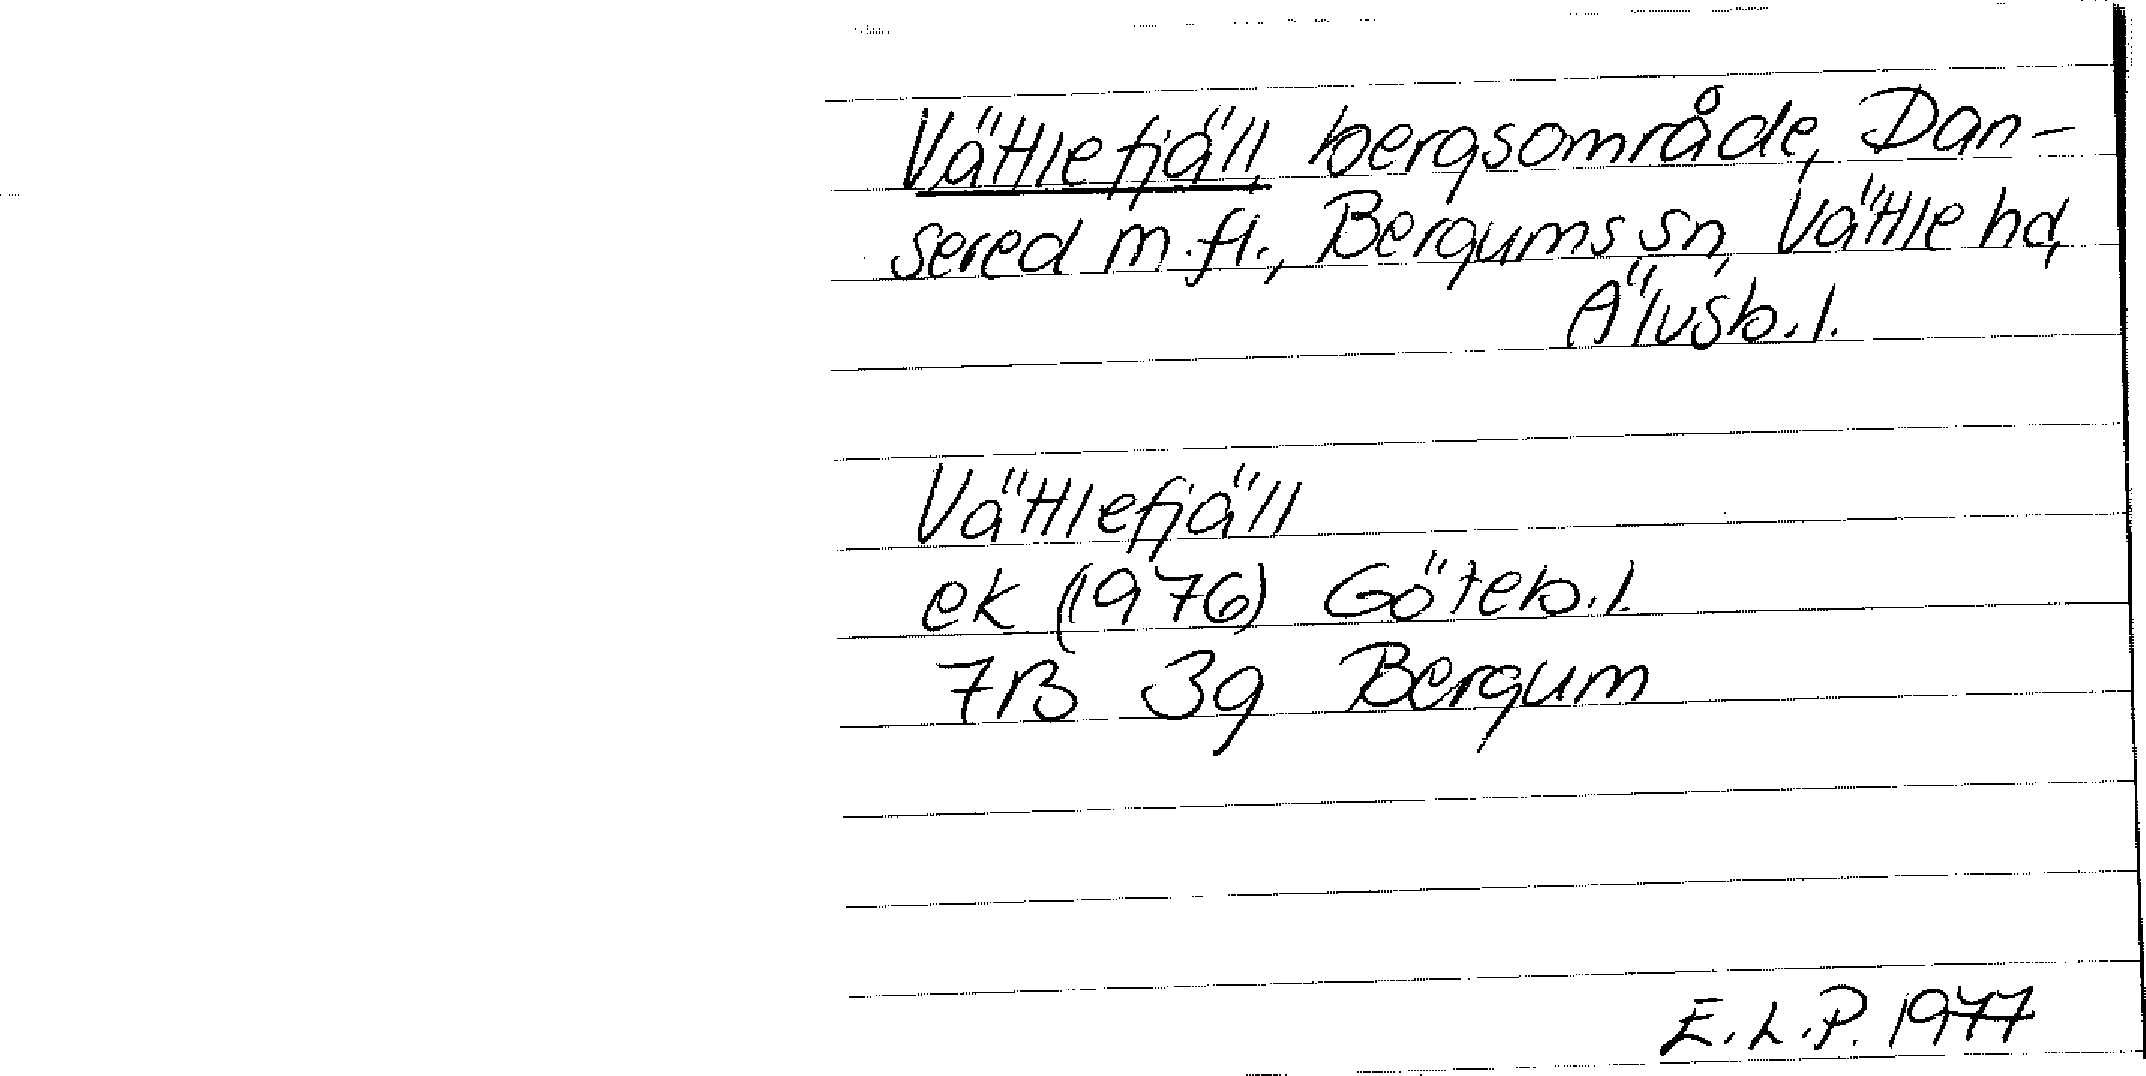 Vättlefjäll, bergsområde, Dan-
sered m.fl., Bergums sn, Vättle hd,
Älvsb.l.
Vättlefjäll
ek (1976) Göteb.l.
7B 3g Bergum
E.L.P. 1977